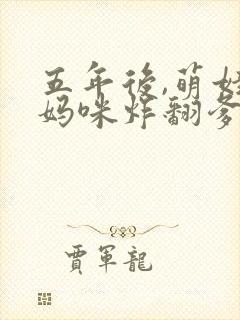 五年後,萌娃
妈咪炸翻爹
賈軍龍